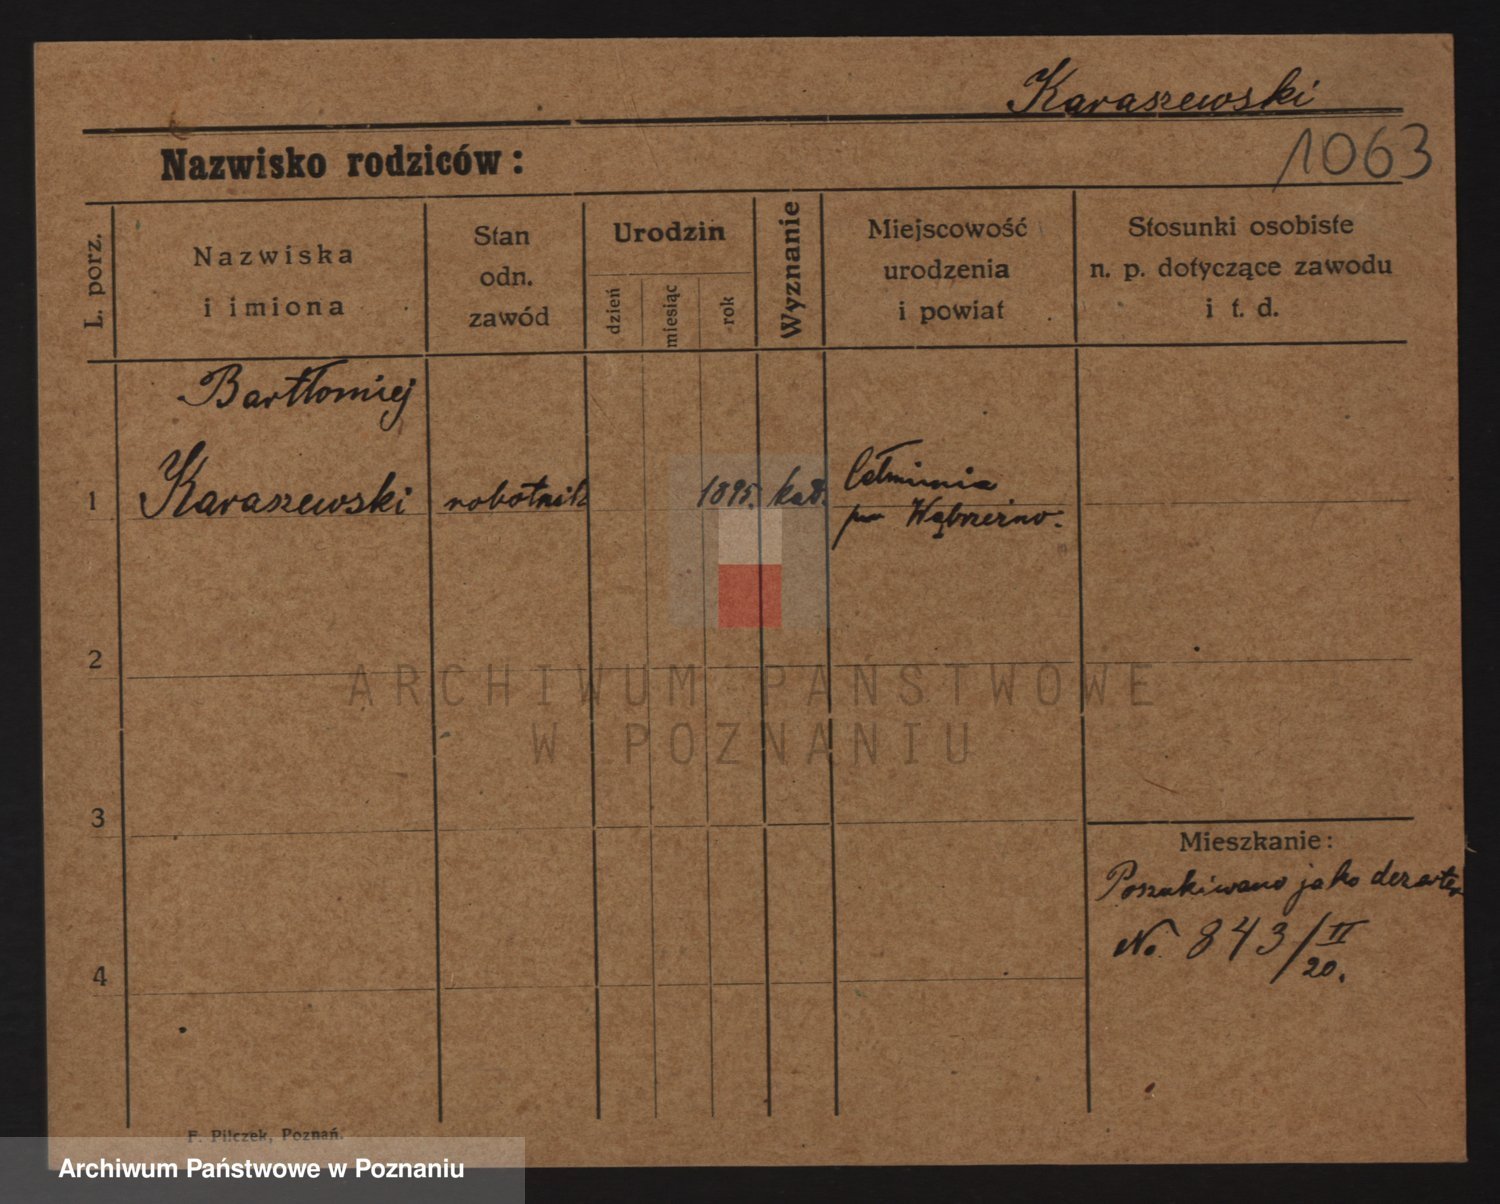 Karaszewski
1063
Nazwisko rodziców:
L. porz.
Nazwiska
i imiona
Stan
odn.
zawód
Urodzin
dzień
miesiąc
rok
Wyznanie
Miejscowość
urodzenia
i powiat
Stosunki osobiste
n. p. dotyczące zawodu
i t. d.
Bartłomiej
1 Karaszewski robotnik 1895. kat.
pow Wąbrzeźno.
2
ARCHIWUM PAŃSTWOWE
W POZNANIU
3
Mieszkanie:
Poszukiwano jako
No. 843/II
20.
4
F. Pilczek, Poznań.
Archiwum Państwowe w Poznaniu